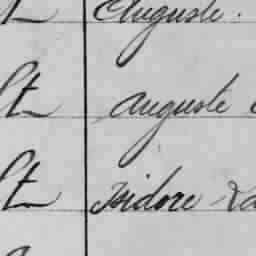 Auguste.
St Auguste
St Isidore